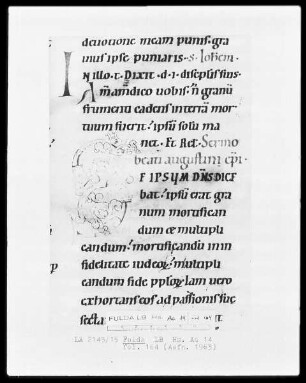 deuotione meam punis. gra
uius ipse puniaris. S. Iohem.
IN illo. t. Dixit. d. i. discipulis suis.
Am̄ am̄ dico uobis. n̄ granū
frumenti cadens in terrā mor
tuum fuerit. ipsū solū ma
net. Et Rel. Sermo
beati augustini ep̄i.
IPSUM DN̄S DICE
bat. ipsū erat gra
num mortifican
dum & multipli
candum. mortificandū in in
fidelitate iudeoꝝ. multipli
candum fide pploꝝ. Iam uero
exhortans eos ad passionis suę
secta
FULDA LB
LA 2149/15 Fulda LB Hs. Aa 14
Fol. 164 (Aufn. 1965)